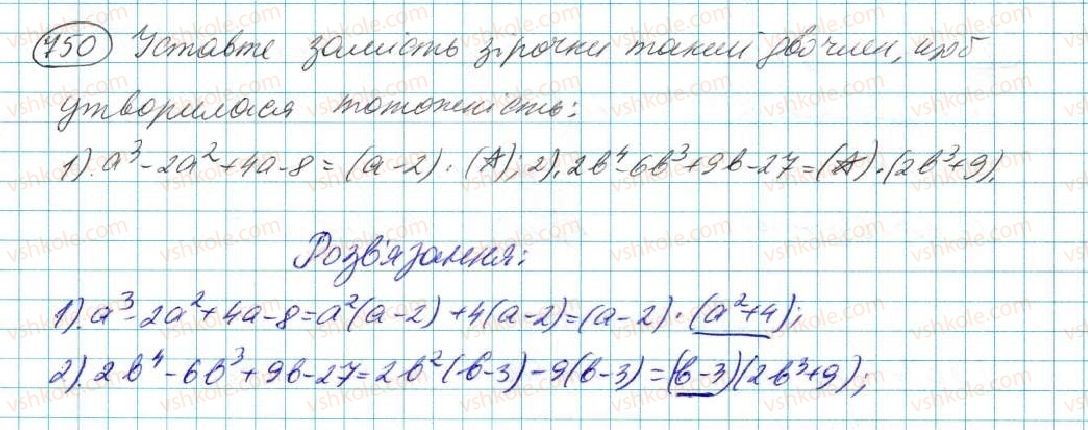 750 Уставте замість зірочки такий двочлен, щоб
утворилася тотожність:
1). a³-2a²+4a-8=(a-2)·(*); 2). 2b⁴-6b³+9b-27=(*)·(2b³+9).
Розв'язання:
1). a³-2a²+4a-8=a²(a-2)+4(a-2)=(a-2)·(a²+4);
2). 2b⁴-6b³+9b-27=2b²(b-3)-9(b-3)=(b-3)(2b³+9);